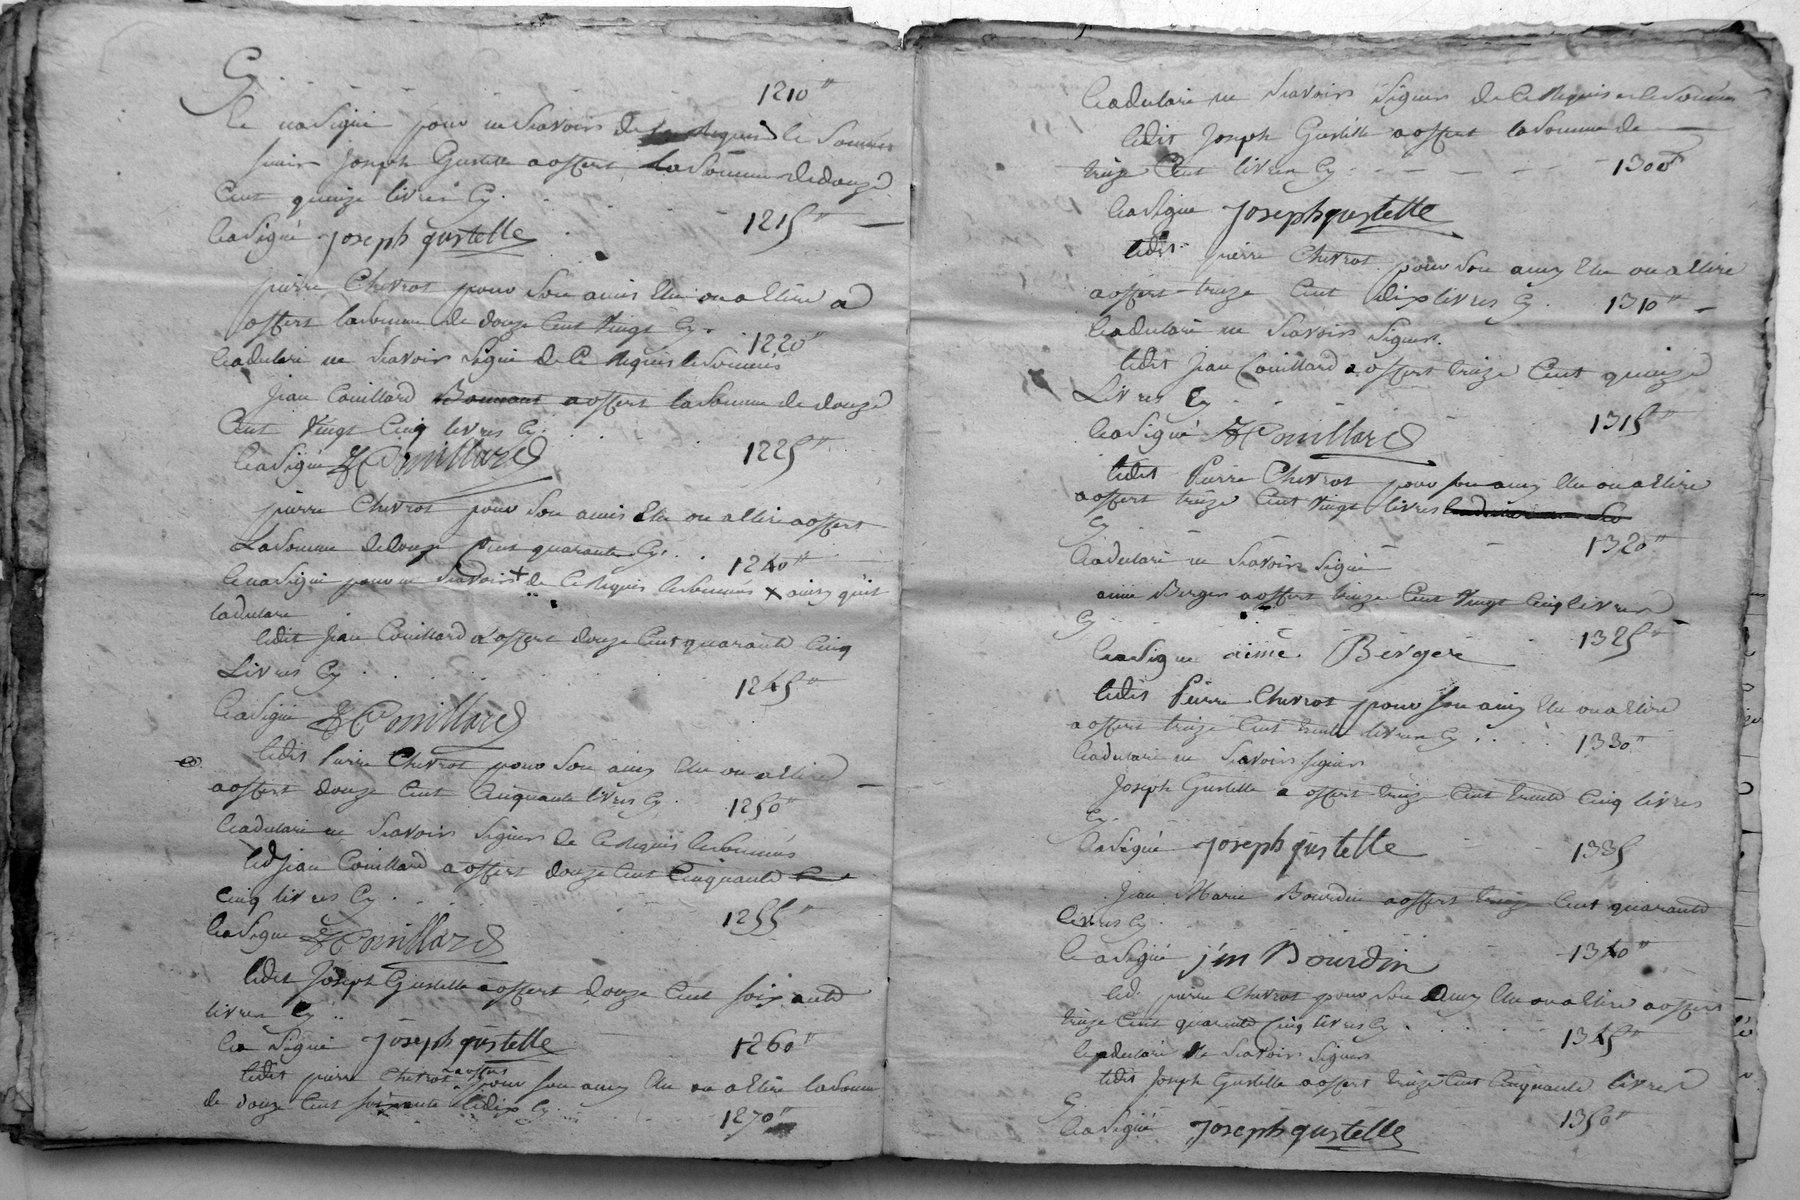 Cy
1210"
et na signé pour ne scavoir de ce requis et sommés
puis Joseph Gustelle a offert la somme de douze
Cent quinze livres Cy . . . 1215"
Et a signé Joseph gustelle
pierre Chevrot pour Son amis Elu ou a Elire a
offert la somme de douze Cent Vingt Cy . 1220"
Et a dclaré ne Scavoir Signé de Ce Requis et Sommés
Jean Couillard a offert la somme de douze
Cent Vingt Cinq livres Cy . . . 1225"
Et a Signé JCouillard
pierre Chevrot pour Son amis Elu ou a Elire a offert
La Somme de douze Cent quarante Cy . . 1240"
Et na Signé pour ne Scavoir + de Ce Requis et sommés x ainsy qu'il
la dclaré
ledit Jean Couillard a offert douze Cent quarante Cinq
Livres Cy . . . 1245"
Et a Signé JCouillard
ledit Pierre Chevrot pour Son amy Elu ou a Elire
a offert douze Cent Cinquante livres Cy . 1250"
Et a dclaré ne Scavoir Signer de Ce Requis et Sommés
led Jean Couillard a offert douze Cent Cinquante
Cinq livres Cy . . . 1255"
Et a Signé JCouillard
ledit Joseph Gustelle a offert douze Cent Soixante
livres Cy . .
Et a Signé Joseph gustelle 1260"
ledit pierre Chevrot a offert pour Son amy Elu ou a Elire la Somme
de douze Cent Soixante et dix Cy . . . 1270"
Et a dclaré ne Scavoir Signer de Ce Requis et Sommés
ledit Joseph Gustelle a offert la Somme de
treize Cent livres Cy . - - - - 1300"
Et a Signé Joseph gustelle
ledit pierre Chevrot pour Son amy Elu ou a Elire
a offert treize Cent dix livres Cy . 1310"
Et a dclaré ne Scavoir Signer.
ledit Jean Couillard a offert treize Cent quinze
Livres Cy . . . 1315"
Et a Signé JCouillard
ledit Pierre Chevrot pour Son amy Elu ou a Elire
a offert treize Cent Vingt livres
Cy . . . 1320"
Et a dclaré ne Scavoir Signé
aimé Berger a offert treize Cent Vingt Cinq livres
Cy . . . 1325"
Et a Signé aimé Bergere
ledit Pierre Chevrot pour Son amy Elu ou a Elire
a offert treize Cent trente livres Cy . . . 1330"
Et a dclaré ne Scavoir signer
Joseph Gustelle a offert treize Cent trente Cinq livres
Cy.
Et a Signé Joseph gustelle 1335
Jean Marie Bourdin a offert treize Cent quarante
livres Cy .
Et a Signé j'm Bourdin 1340"
led. pierre Chevrot pour Son Amy Elu ou a Elire a offert
treize Cent quarante Cinq livres Cy . . . 1345"
Et a dclaré ne Scavoir Signer
ledit Joseph Gustelle a offert treize Cent Cinquante livres
Cy . . . 1350"
Et a Signé Joseph gustelle